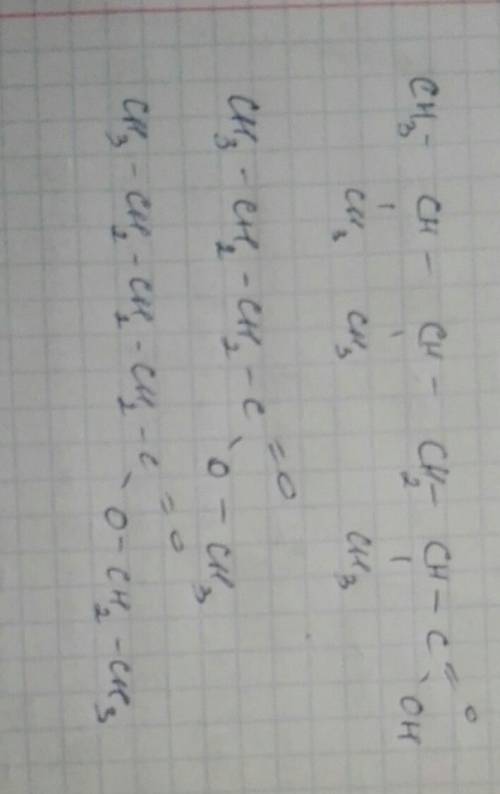 CH₃ - CH - CH - CH₂ - CH - C = O
CH₃ CH₃ CH₃ OH
CH₃ - CH₂ - CH₂ - C = O
O - CH₃
CH₃ - CH₂ - CH₂ - CH₂ - C = O
O - CH₂ - CH₃